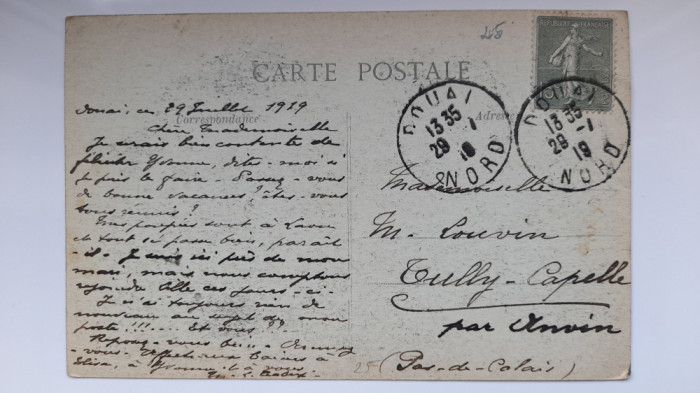 25
CARTE POSTALE
REPUBLIQUE FRANÇAISE
Correspondance
Adresse
DOUAI
13 35
29 -1
19
NORD
DOUAI
13 35
29 -1
19
NORD
Douai, ce 29 Juillet 1919
Chère Mademoiselle
Je serais bien contente de
Yvonne, dites-moi si
je puis le faire - Passez-vous
de bonnes vacances? êtes-vous
tous réunis?
Mes poupées sont à Laon
et tout se passe bien, paraît
-il - Je suis ici près de mon
mari, mais nous comptons
rejoindre Elle ces jours-ci -
Je n'ai toujours rien de
nouveau au sujet de mon
poste!!!... Et vous??
Reposez-vous bien -
-vous - baisers à
Elisa, à Yvonne à vous
Mademoiselle
M. Louvin
Tully-Capelle
par Anvin
(Pas-de-Calais)
25